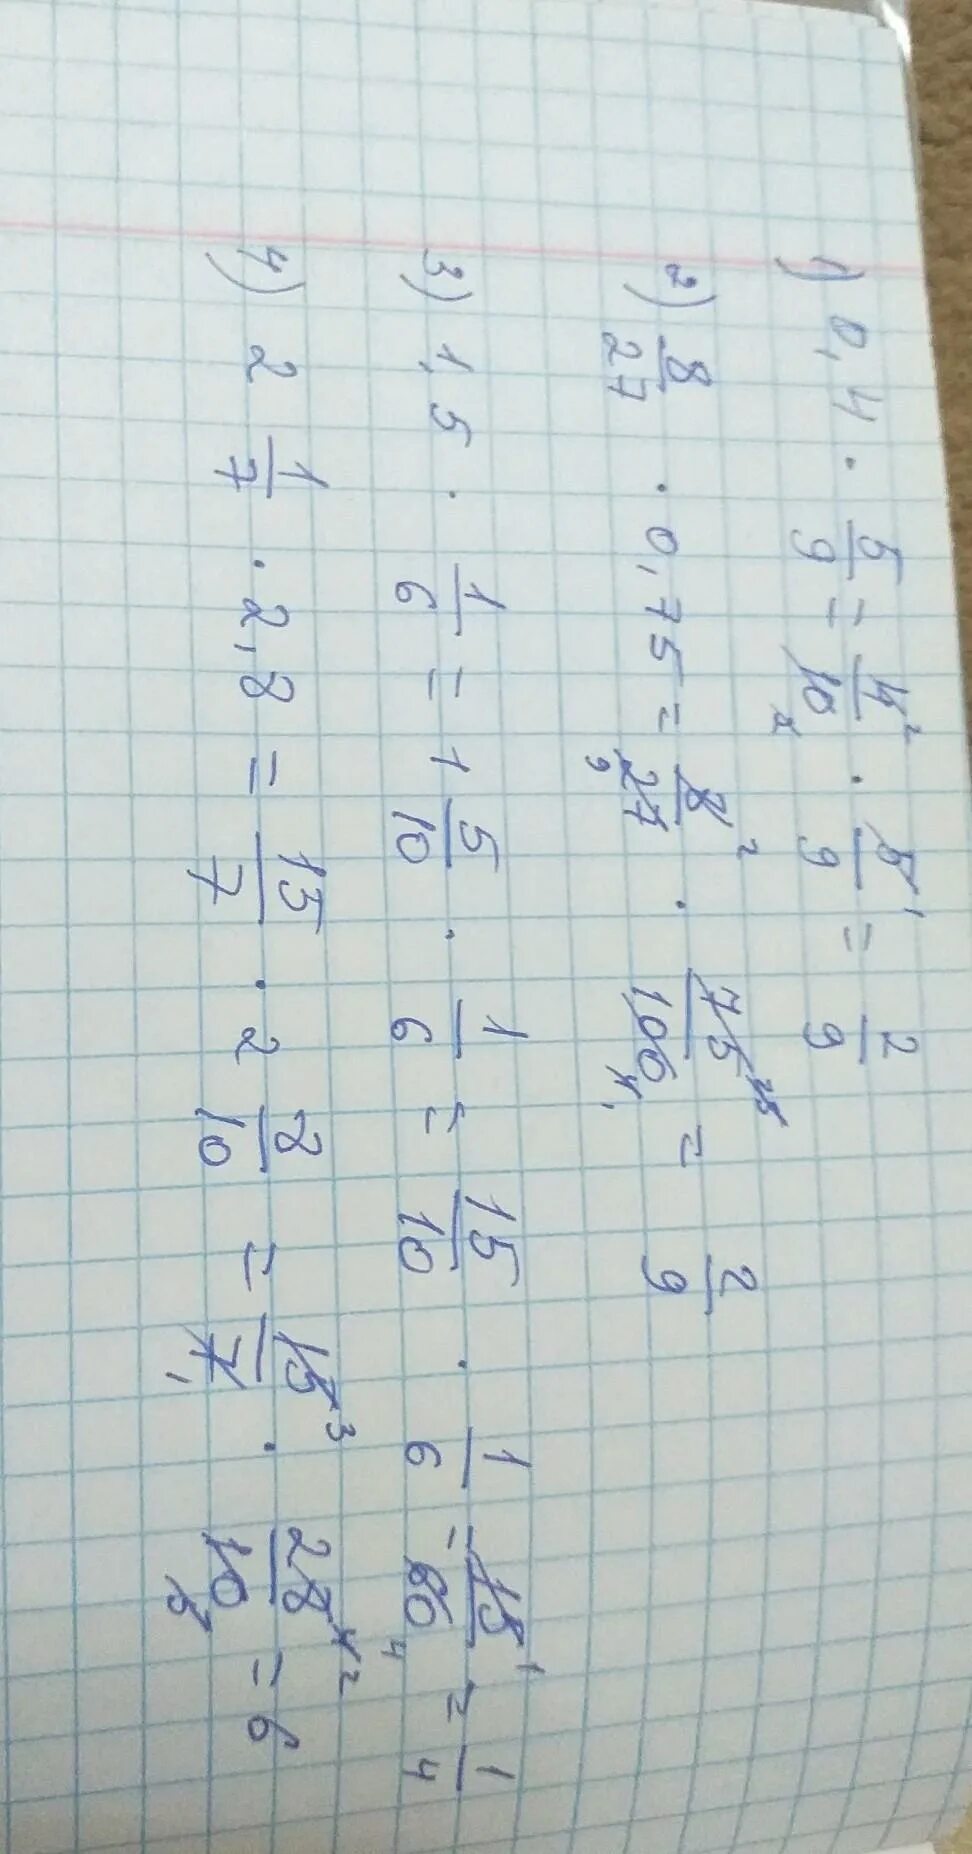 1) 0,4 · 5/9 = 4²/10₂ · 5¹/9 = 2/9
2) 8/27 · 0,75 = 8²/27₉ · 75/100 = 2/9
3) 1,5 · 1/6 = 1 5/10 · 1/6 = 15/10 · 1/6 = 15¹/60₄ = 1/4
4) 2 1/7 · 2,8 = 15/7 · 2 8/10 = 15³/7₁ · 28⁴ ²/10₅ = 6